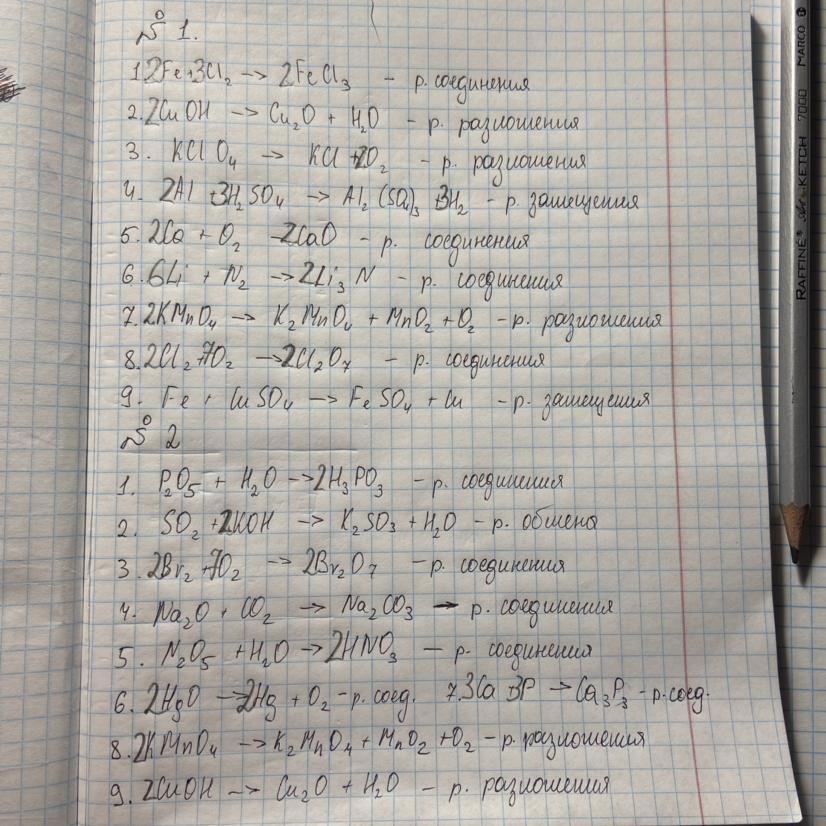 № 1.
1. 2Fe + 3Cl₂ → 2FeCl₃ - р. соединения
2. 2CuOH → Cu₂O + H₂O - р. разложения
3. KClO₄ → KCl + 2O₂ - р. разложения
4. 2Al + 3H₂SO₄ → Al₂(SO₄)₃ + 3H₂ - р. замещения
5. 2Ca + O₂ → 2CaO - р. соединения
6. 6Li + N₂ → 2Li₃N - р. соединения
7. 2KMnO₄ → K₂MnO₄ + MnO₂ + O₂ - р. разложения
8. 2Cl₂ + 7O₂ → 2Cl₂O₇ - р. соединения
9. Fe + CuSO₄ → FeSO₄ + Cu - р. замещения
№ 2
1. P₂O₅ + H₂O → 2H₃PO₃ - р. соединения
2. SO₂ + 2KOH → K₂SO₃ + H₂O - р. обмена
3. 2Br₂ + 7O₂ → 2Br₂O₇ - р. соединения
4. Na₂O + CO₂ → Na₂CO₃ - р. соединения
5. N₂O₅ + H₂O → 2HNO₃ - р. соединения
6. 2HgO → 2Hg + O₂ - р. соед. 7. 3Ca + 3P → Ca₃P₃ - р. соед.
8. 2KMnO₄ → K₂MnO₄ + MnO₂ + O₂ - р. разложения
9. 2CuOH → Cu₂O + H₂O - р. разложения
RAFFINÉ SKETCH 7000 MARCO